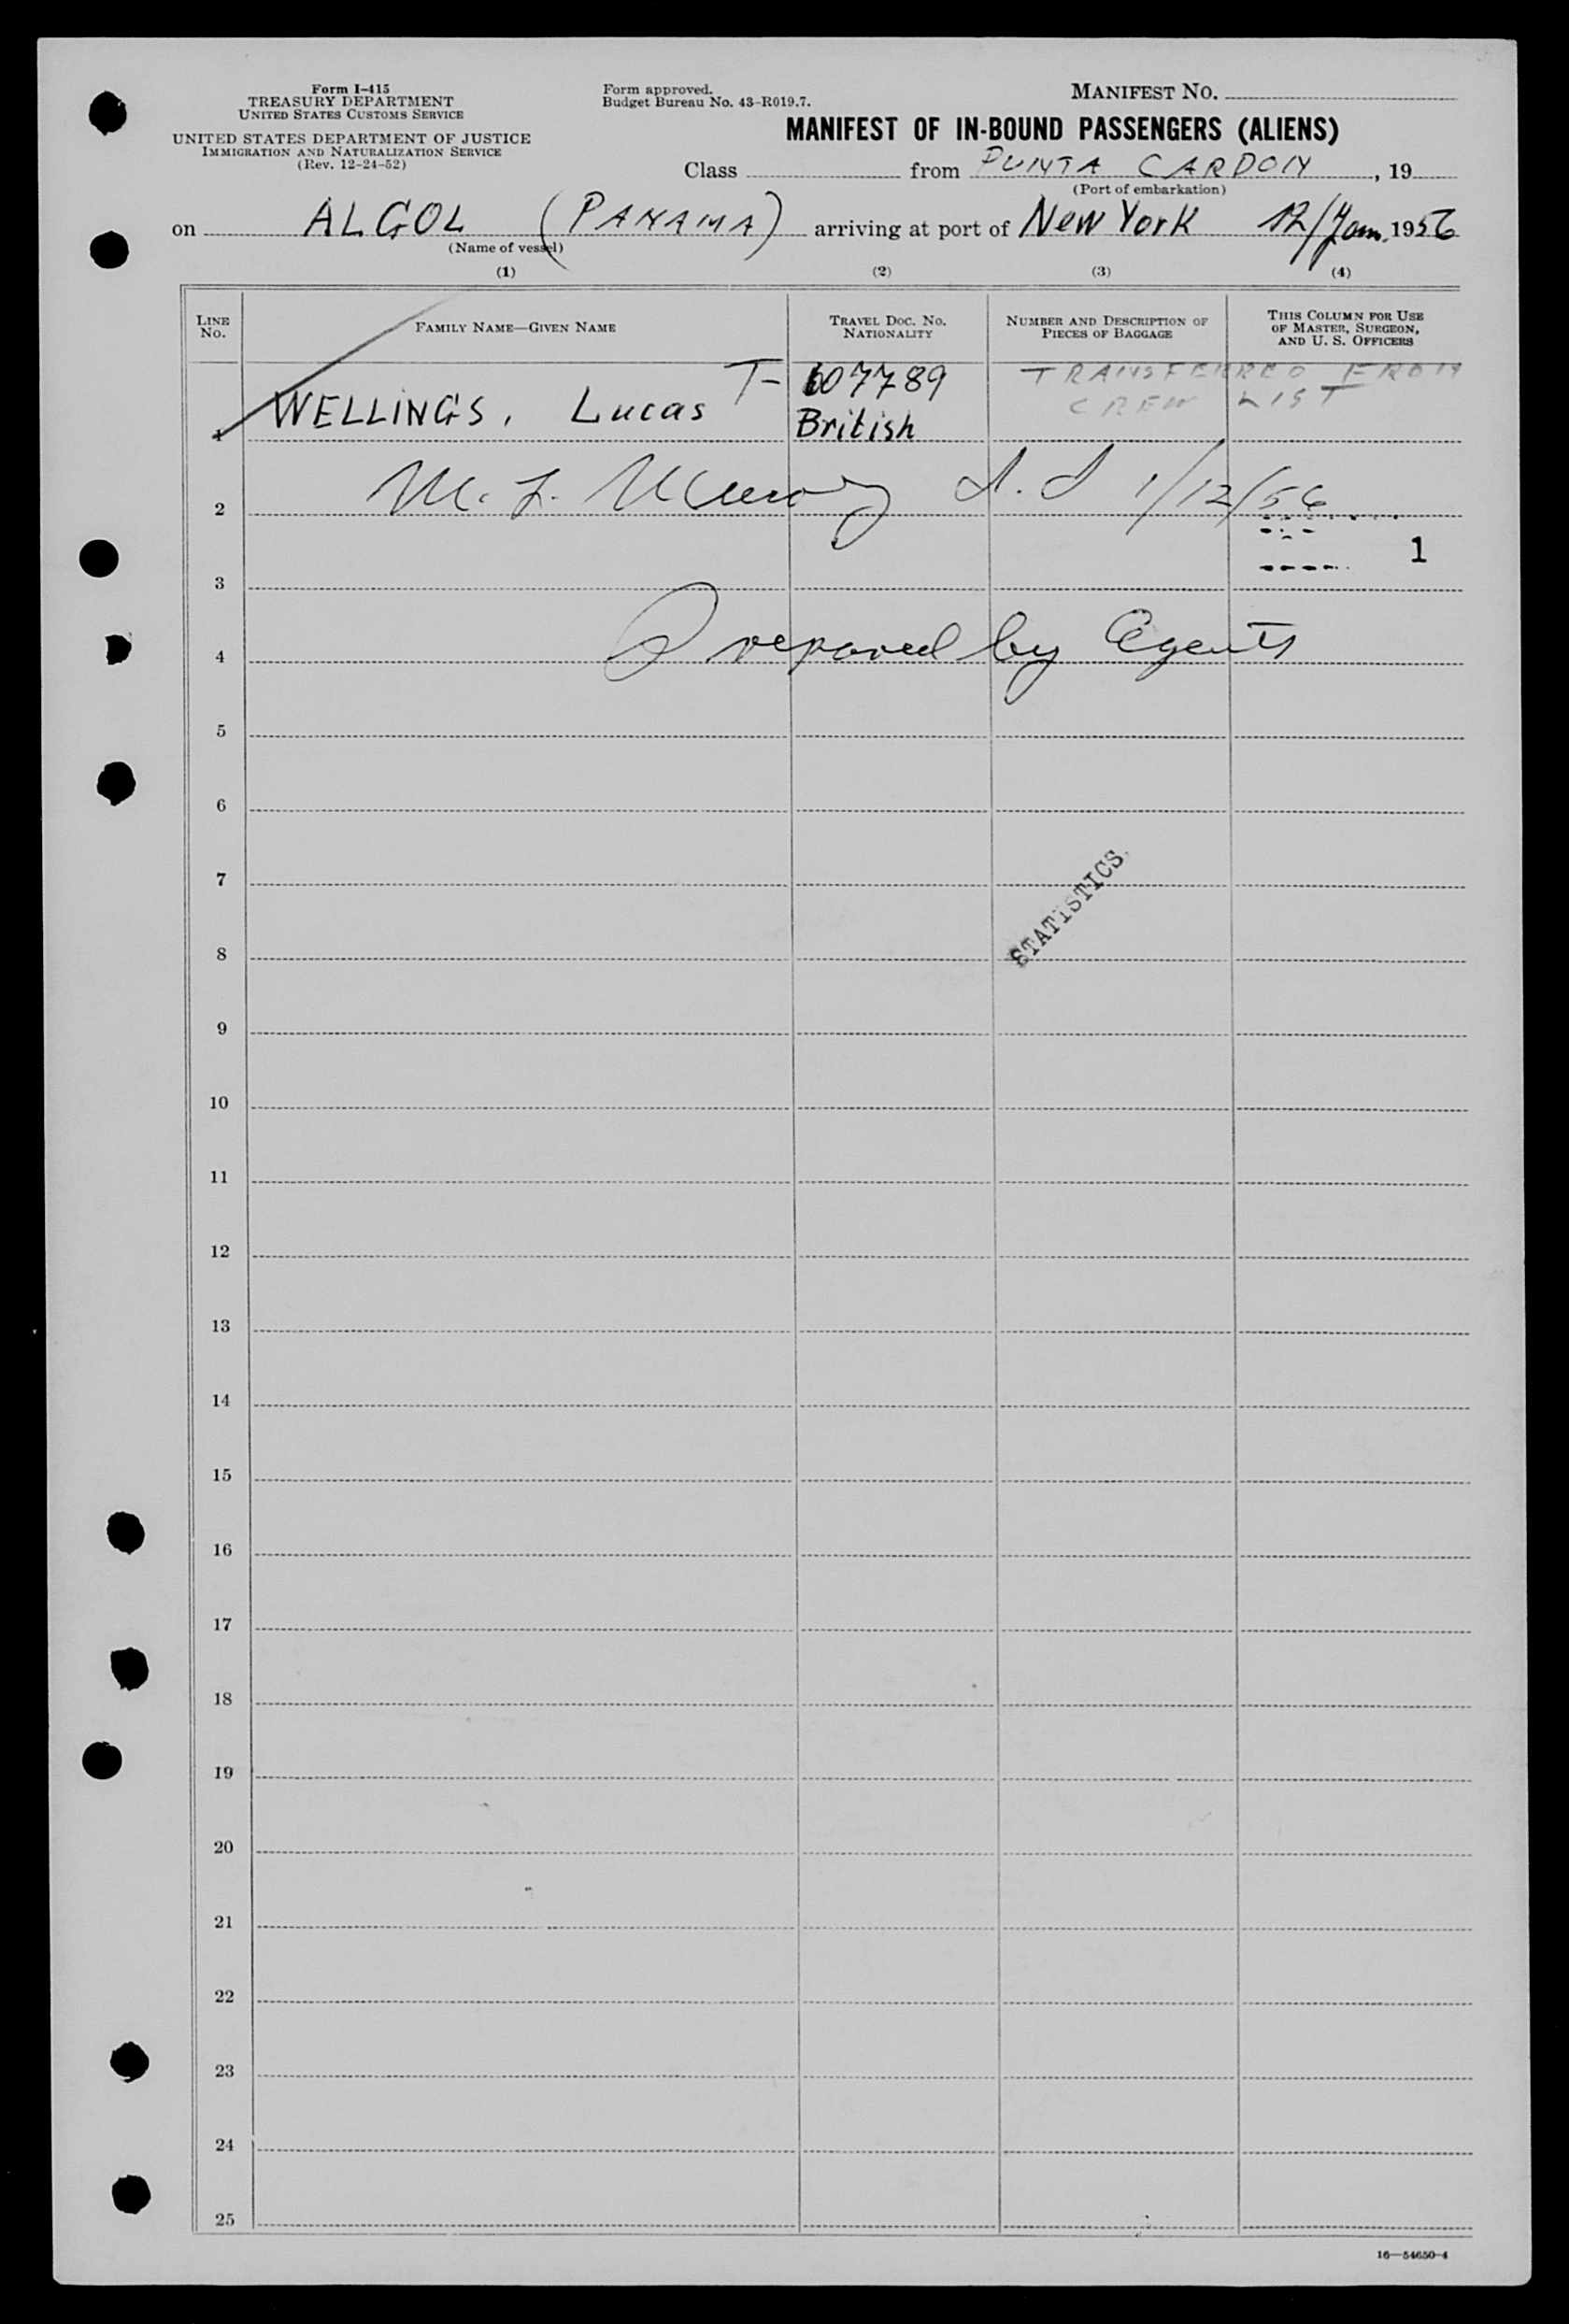 Form I-415
TREASURY DEPARTMENT
UNITED STATES CUSTOMS SERVICE
UNITED STATES DEPARTMENT OF JUSTICE
IMMIGRATION AND NATURALIZATION SERVICE
(Rev. 12-24-52)
Form approved.
Budget Bureau No. 43-R019.7.
MANIFEST NO.
MANIFEST OF IN-BOUND PASSENGERS (ALIENS)
Class from PUNTA CARDON, 19
(Port of embarkation)
on ALGOL (PANAMA) arriving at port of New York 12/Jan. 1956
(Name of vessel)
(1) (2) (3) (4)
LINE NO. FAMILY NAME—GIVEN NAME TRAVEL DOC. NO. NATIONALITY NUMBER AND DESCRIPTION OF PIECES OF BAGGAGE THIS COLUMN FOR USE OF MASTER, SURGEON, AND U. S. OFFICERS
WELLINGS, Lucas T- 607789 TRANSFERRED FROM
British CREW LIST
2 M. L. 1/12/56
1
3
4 Prepared by Agents
5
6
7
STATISTICS
8
9
10
11
12
13
14
15
16
17
18
19
20
21
22
23
24
25
16—54650-4